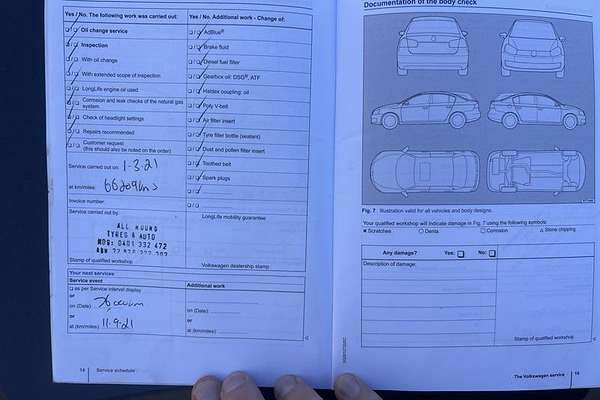 Yes / No. The following work was carried out:
Oil change service
Inspection
With oil change
With extended scope of inspection
LongLife engine oil used
Corrosion and leak checks of the natural gas system
Check of headlight settings
Repairs recommended
Customer request
(this should also be noted on the order)
Service carried out on: 1-3-21
at km/miles:
Invoice number:
Service carried out by
ALL ROUND
TYRES & AUTO
MOB: 0401 332 472
Stamp of qualified workshop
Yes / No. Additional work - Change of:
AdBlue®
Brake fluid
Diesel fuel filter
Gearbox oil: DSG®, ATF
Haldex coupling: oil
Poly V-belt
Air filter insert
Tyre filler bottle (sealant)
Dust and pollen filter insert
Toothed belt
Spark plugs
LongLife mobility guarantee
Volkswagen dealership stamp
Your next services
Service event
as per Service interval display
or
on (Date)
or
at (km/miles) 11-9-21
Additional work
on (Date)
or
at (km/miles)
14 Service schedule
Documentation of the body check
Fig. 7 Illustration valid for all vehicles and body designs.
Your qualified workshop will indicate damage in Fig. 7 using the following symbols:
Scratches Dents Corrosion Stone chipping
Any damage? Yes: No:
Description of damage:
Stamp of qualified workshop
The Volkswagen service